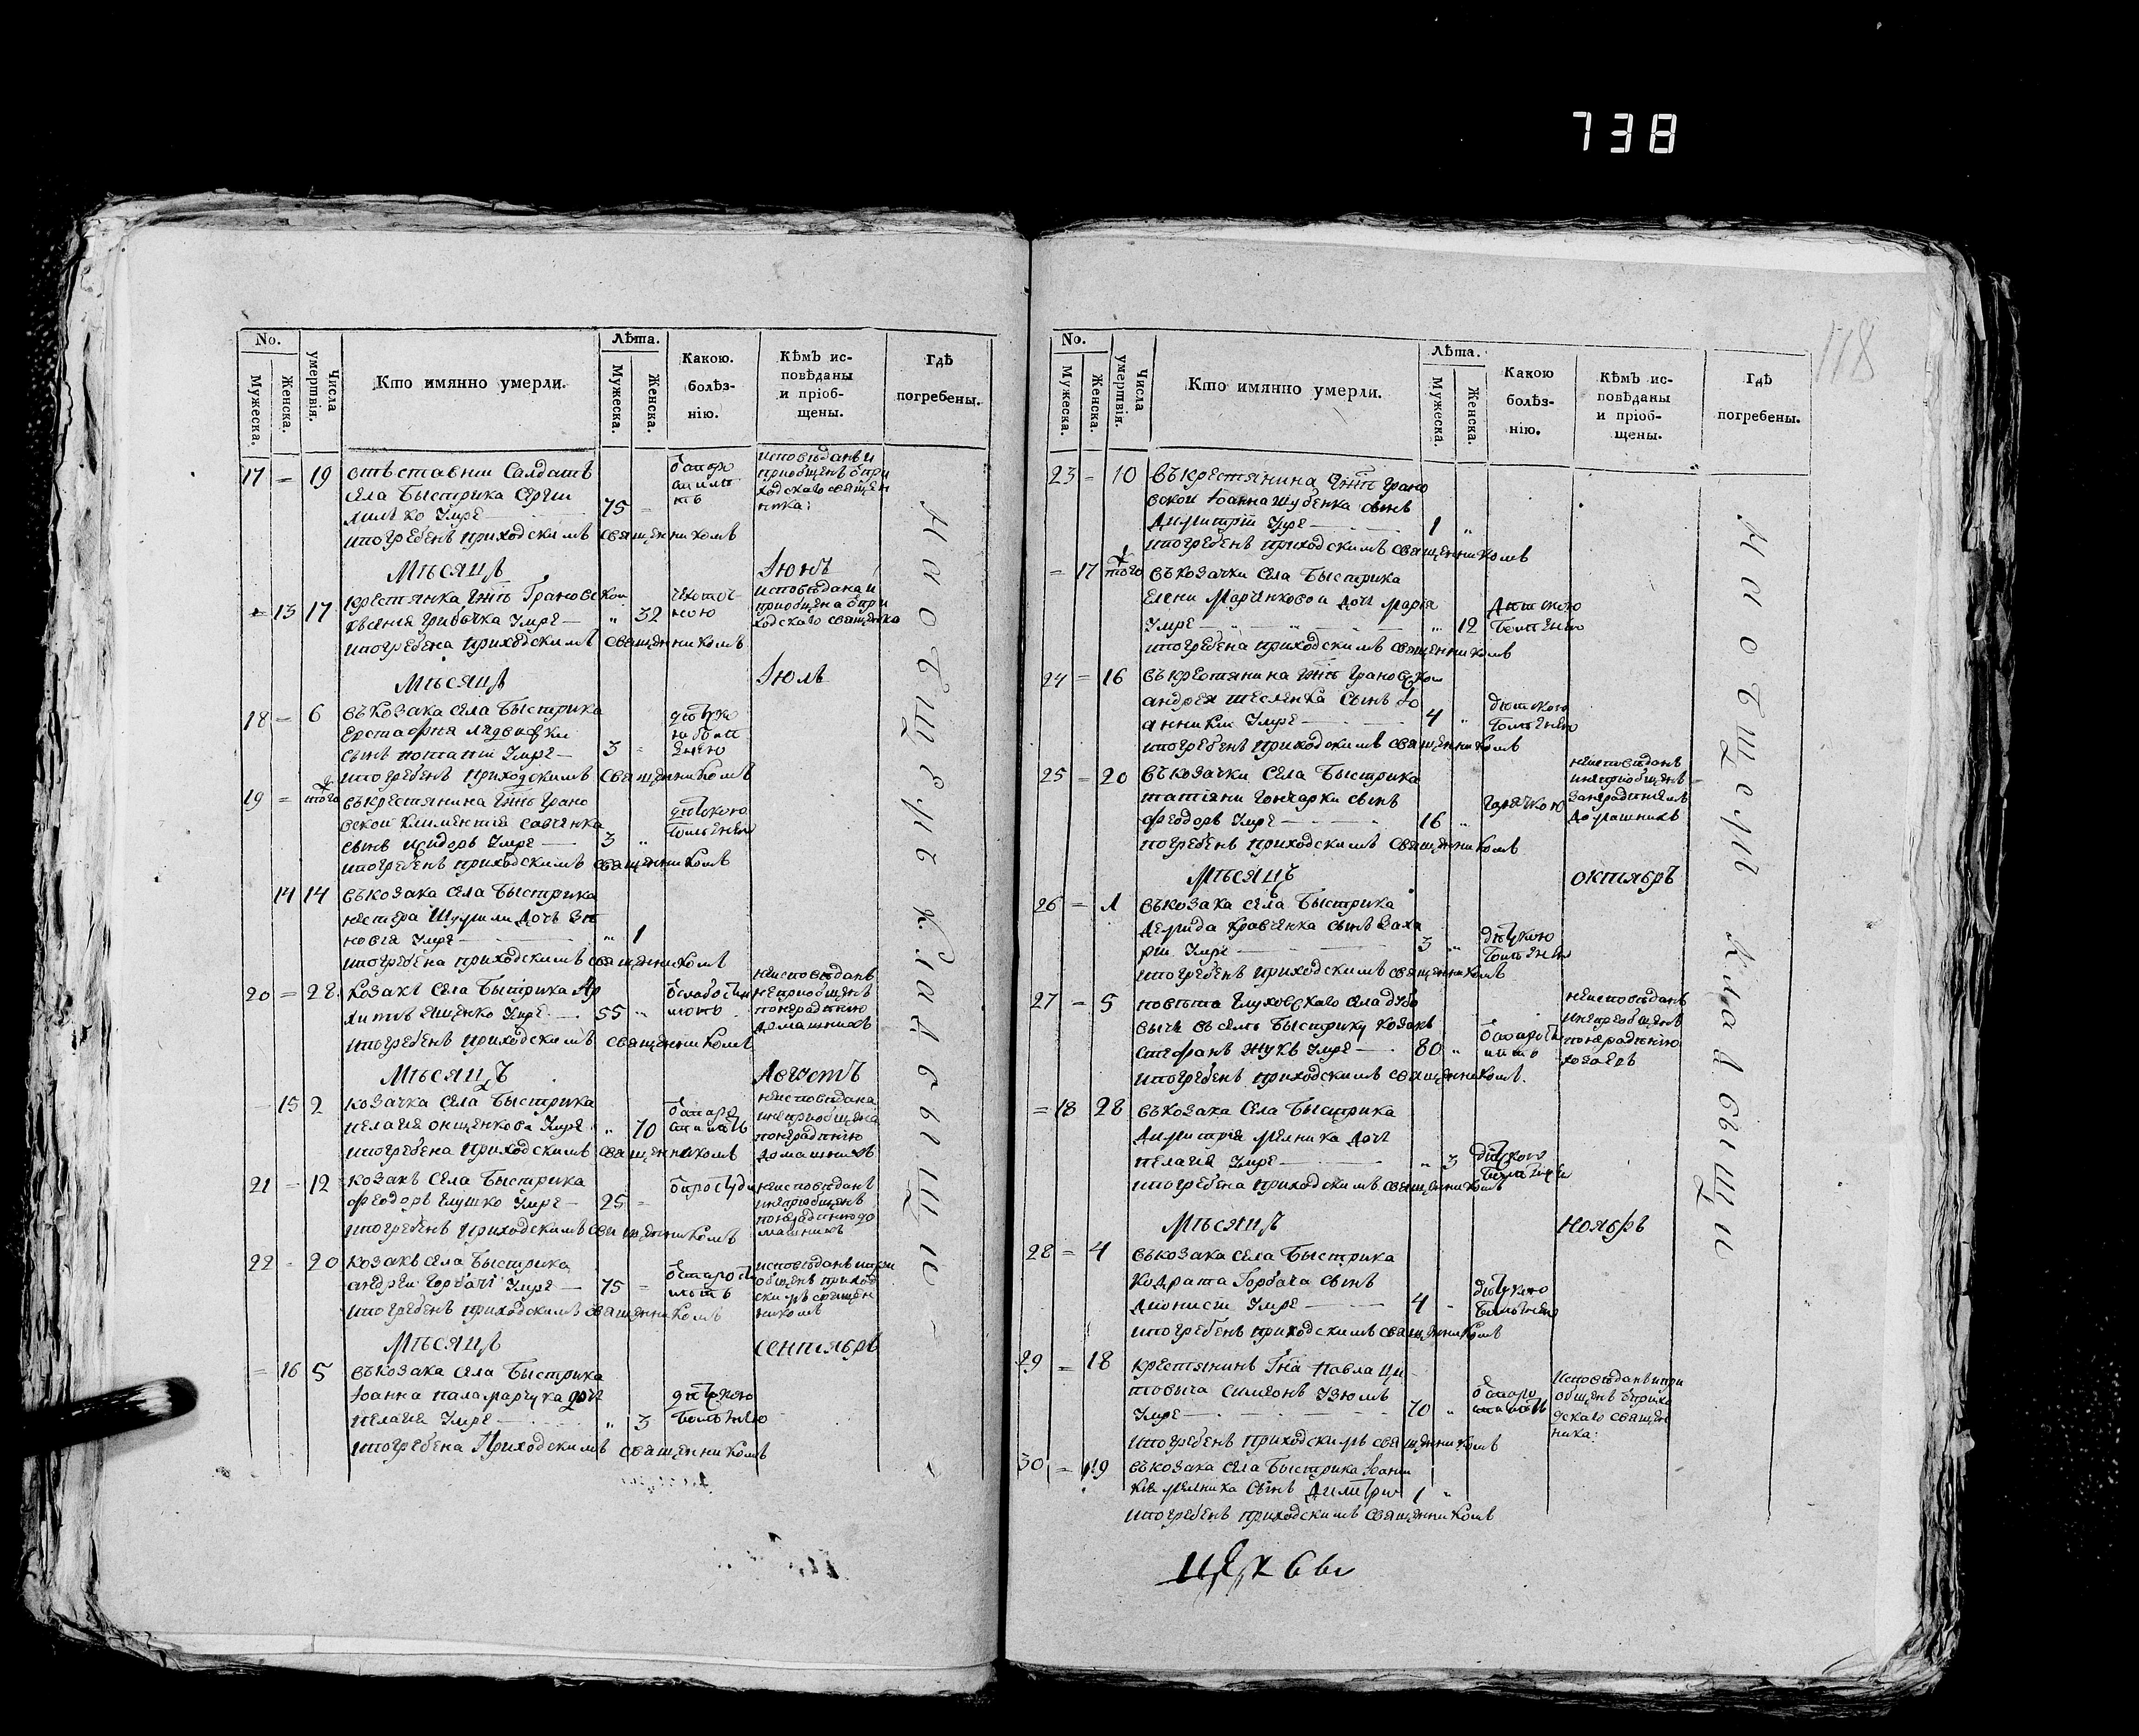 738
178
No.
Мужеска.
Женска.
Числа умертвія.
Кто имянно умерли.
Лѣта.
Мужеска.
Женска.
Какою.
болѣз-
нію.
Кѣмъ ис-
повѣданы
и пріоб-
щены.
Гдѣ
погребены.
17 = 19 отъставни Салдатъ
села Быстрика Сергіи
75 =
умре
ипогребенъ приходскимъ священникомъ
исповѣданъ и
приобщенъ ѿ при
ходскаго священ
ника:
Мѣсяцъ Іюнь
= 13 17 крестянка Грановской
умре — „ 32
ипогребена приходскимъ священникомъ
исповѣдана и
приобщена ѿ при
ходскаго
Мѣсяцъ Іюль
18 = 6 въ козака села Быстрика
сынъ потапій умре — 3 =
ипогребенъ приходскимъ священникомъ
19 = того въ крестянина Грано
вской Климентия Савченка
сынъ исидоръ умре — 3 „
ипогребенъ приходскимъ священникомъ
дѣтскою
болѣзнею
14 14 въ козака села Быстрика
нестера Шумили дочь Зѣ
новія умре — „ 1
ипогребена приходскимъ священникомъ
20 = 28 козакъ села Быстрика Ар
умре — 55 „
ипогребенъ приходскимъ священникомъ
неисповѣданъ
неприобщенъ
понерадѣнію
домашнихъ
Мѣсяцъ Августъ
15 2 козачка села Быстрика
пелагия онищенкова умре „ 70
ипогребена приходскимъ священникомъ
неисповѣдана
инеприобщена
понерадѣнію
домашнихъ
21 = 12 козакъ села Быстрика
феодоръ глушко умре — 25 =
ипогребенъ приходскимъ священникомъ
неисповѣданъ
инеприобщенъ
понерадѣнію до
машнихъ
22 = 20 козакъ села Быстрика
андреи горбачъ умре — 75 =
ипогребенъ приходскимъ священникомъ
исповѣданъ ипри
общенъ приход
скимъ священ
никомъ
Мѣсяцъ сентябрь
= 16 5 въ козака села Быстрика
Іоанна паламарчука дочь
пелагия умре — „ 3
ипогребена Приходскимъ священникомъ
дѣтскою
болѣзнею
No.
Мужеска.
Женска.
Числа умертвія.
Кто имянно умерли.
Лѣта.
Мужеска.
Женска.
Какою
болѣз-
нію.
Кѣмъ ис-
повѣданы
и пріоб-
щены.
Гдѣ
погребены.
23 = 10 въ крестянина Грано
вской Іоанна Шубенка сынъ
димитрій умре — 1 „
ипогребенъ приходскимъ священникомъ
= 17 того въ козачки села Быстрика
Елени Марченковои дочь марія
умре — „ 12
ипогребена приходскимъ священникомъ
дѣтскою
болѣзнею
24 = 16 въ крестянина Грановской
андрея тесленка сынъ Ио
анникій умре — 4 „
ипогребенъ приходскимъ священникомъ
дѣтскою
болѣзнею
25 = 20 въ козачки села Быстрика
татіяни гончарки сынъ
феодоръ умре — 16 „
погребенъ приходскимъ священникомъ
горячкою
неисповѣданъ
инеприобщенъ
занерадѣніемъ
домашнихъ
Мѣсяцъ октябрь
26 = 1 въ козака села Быстрика
демида кравченка сынъ Заха
рій умре — 3 „
ипогребенъ приходскимъ священникомъ
дѣтскою
болѣзнею
27 = 5 повѣта глуховскаго села дубо
вычъ въ селѣ Быстрику козакъ
стефанъ жукъ умре — 80 „
ипогребенъ приходскимъ священникомъ.
неисповѣданъ
инеприобщенъ
понерадѣнію
= 18 28 въ козака села Быстрика
димитрія мелника дочь
пелагия умре — „ 3
ипогребена приходскимъ священникомъ
дѣтскою
Мѣсяцъ ноябрь
28 = 4 въ козака села Быстрика
кодрата Горбача сынъ
дионисій умре — 4 -
ипогребенъ приходскимъ священникомъ
дѣтскою
болѣзнею
29 = 18 крестянинъ Гна Павла Ци
товича Симеонъ Изюмъ
умре — 70 „
ипогребенъ приходскимъ священникомъ
исповѣданъ ипри
общенъ ѿ прихо
дскаго священ
ника:
30 = 19 въ козака села Быстрика
мелника сынъ димитрій 1 „
ипогребенъ приходскимъ священникомъ
на общемъ кладбищи
церкви